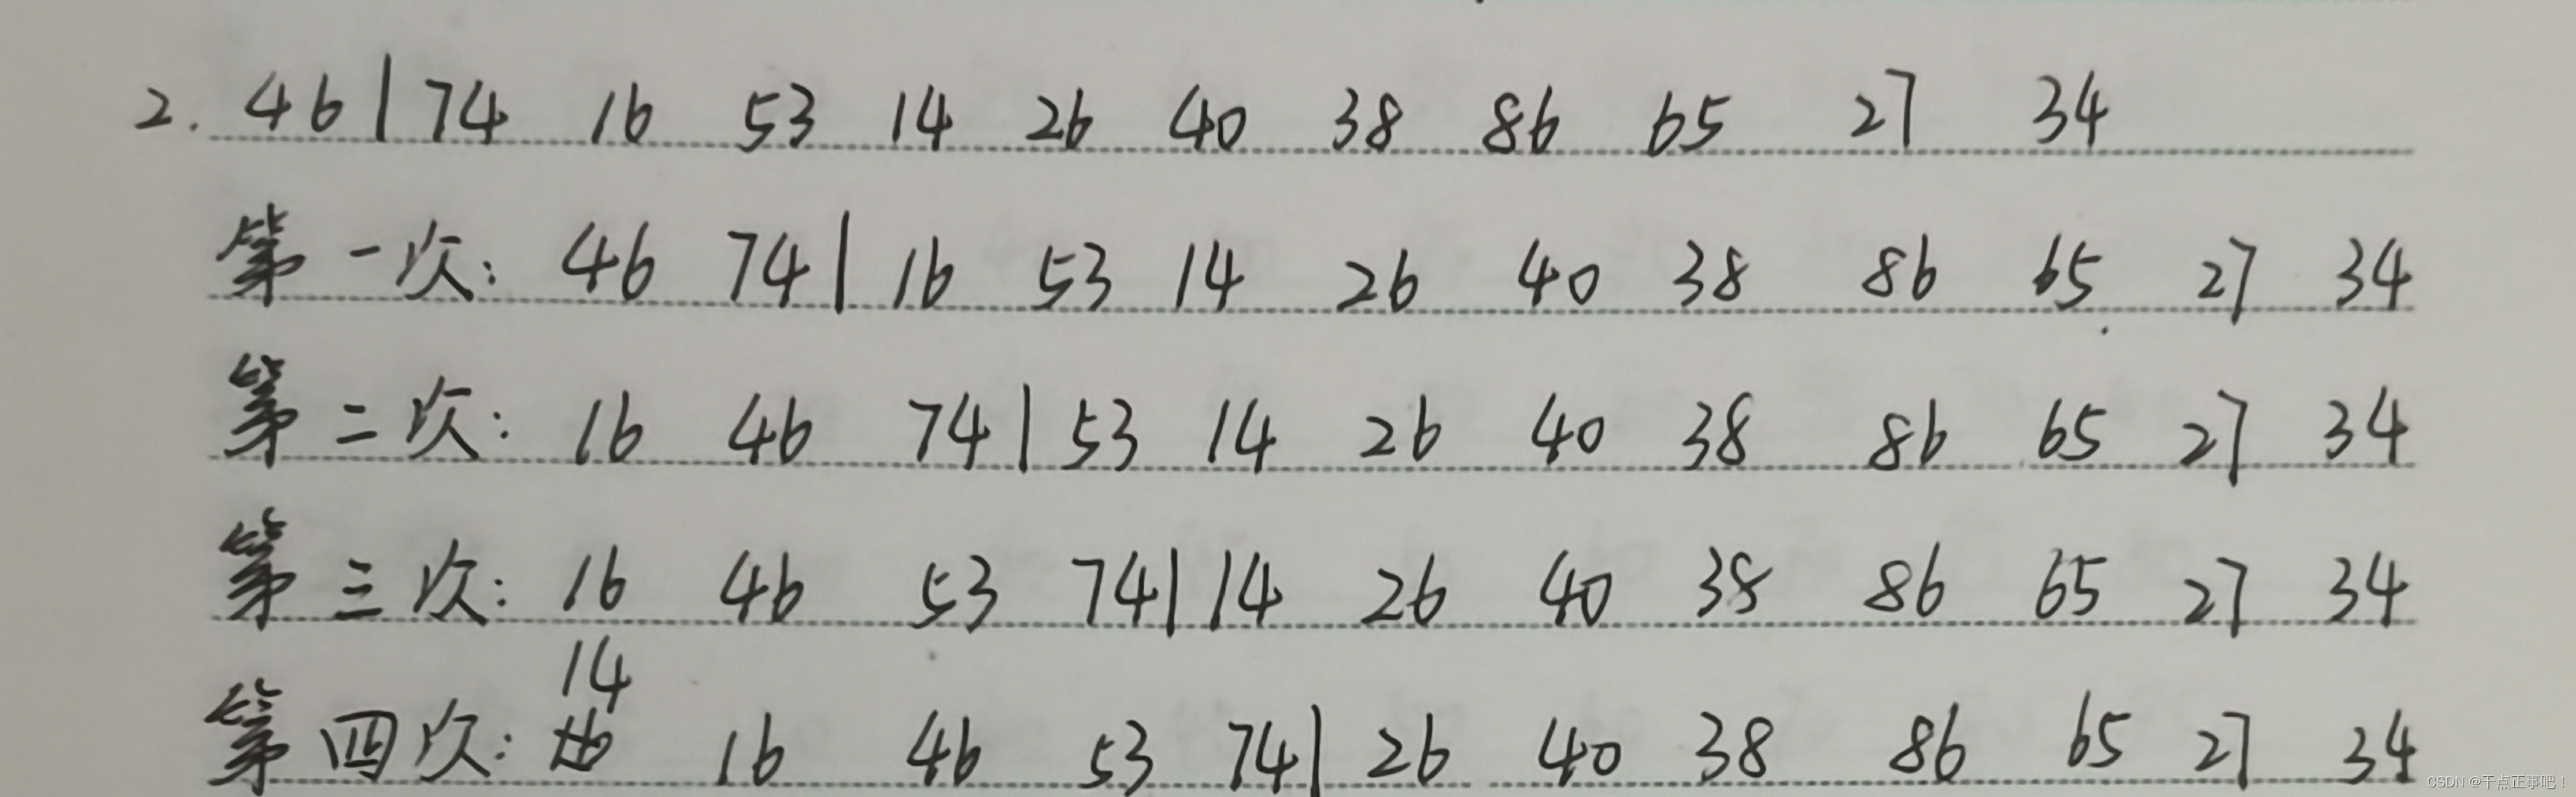 2. 46 | 74 16 53 14 26 40 38 86 65 27 34
第一次: 46 74 | 16 53 14 26 40 38 86 65 27 34
第二次: 16 46 74 | 53 14 26 40 38 86 65 27 34
第三次: 16 46 53 74 | 14 26 40 38 86 65 27 34
14
第四次: 16 46 53 74 | 26 40 38 86 65 27 34
CSDN @干点正事吧!